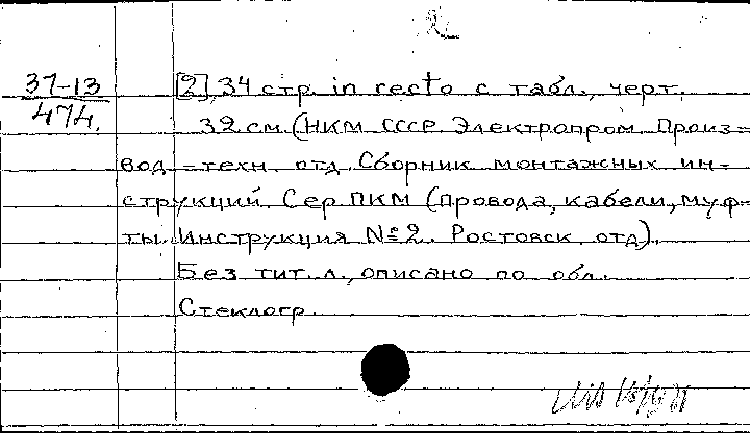 2
37-13
474.
[2], 34 стр. in recto с табл., черт.
32 см. (НКМ СССР. Электропром. Произ=
вод.-техн. отд. Сборник монтажных ин-
струкций. Сер. ПКМ (провода, кабели, муф-
ты. Инструкция №2. Ростовск. отд).
Без тит. л., описано по обл.
Стеклогр.